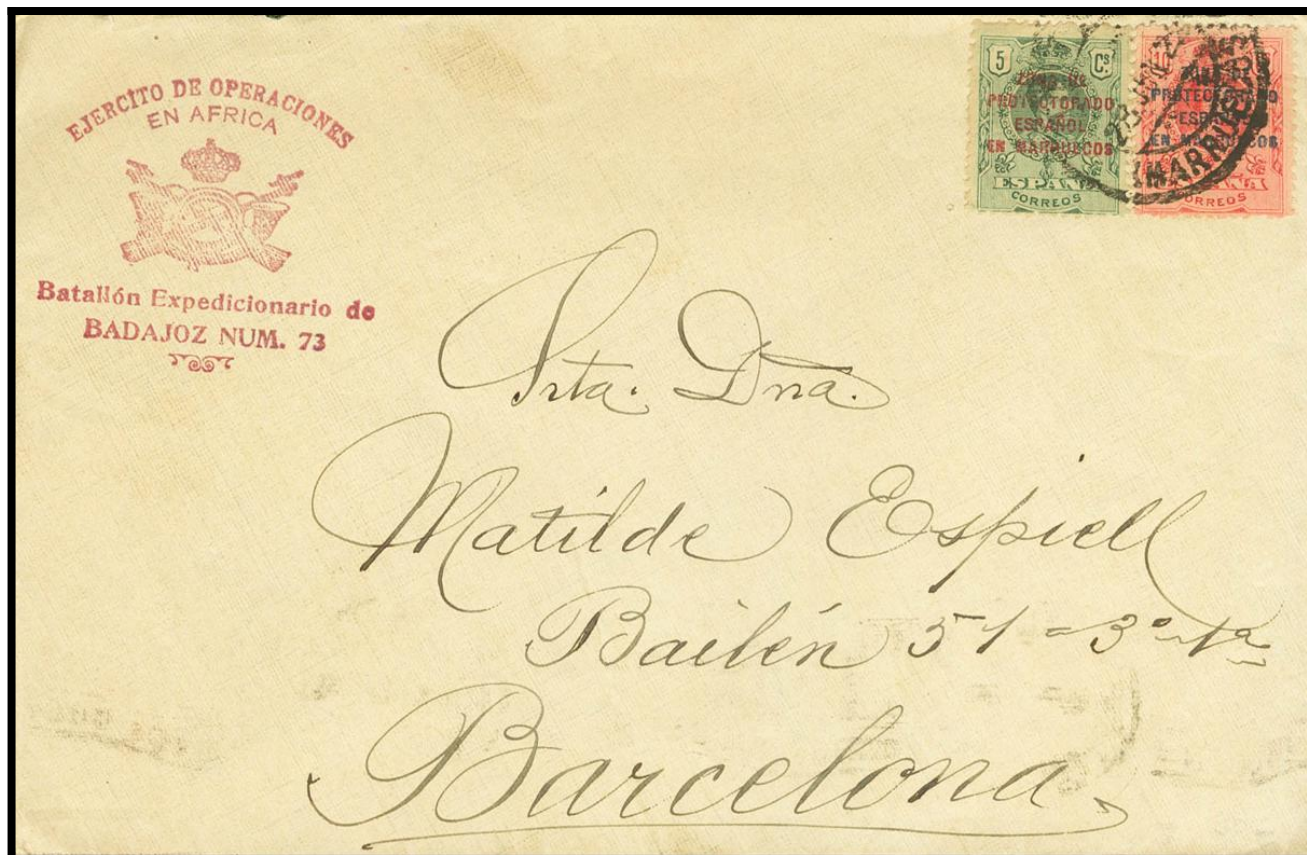 EJERCITO DE OPERACIONES
EN AFRICA
Batallón Expedicionario de
BADAJOZ NUM. 73
5 Cs.
Zona de
PROTECTORADO
ESPAÑOL
EN MARRUECOS
ESPAÑA
CORREOS
PROTECTORADO
ESPAÑOL
EN MARRUECOS
ESPAÑA
CORREOS
Srta. Dna.
Matilde Espiell
Bailén 51 = 3º 1ª
Barcelona